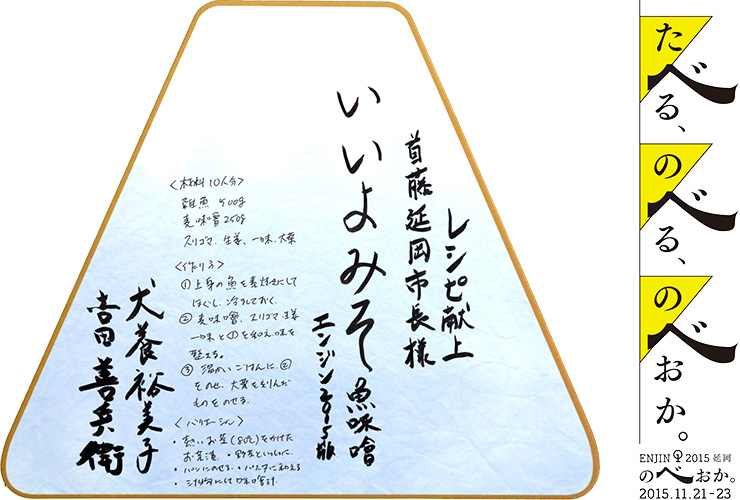 レシピ献上
首藤延岡市長様
いいよみそ魚味噌
エンジン2015版
〈材料10人分〉
雑魚 500g
麦味噌250g
スリゴマ、生姜、一味、大葉
〈作り方〉
①上身の魚を素焼きにして
ほぐし、冷ましておく。
②麦味噌、スリゴマ、生姜
一味と①を和え、味を
整える。
③温かいごはんに、②を
のせ、大葉を刻んだ
ものをのせる。
〈バリエーション〉
・熱いお茶(80℃)をかけた
お茶漬・野菜といっしょに。
・パンにのせる・パスタに和える
犬養裕美子
吉田善兵衛
たべる、
のべる、
のべおか。
ENJIN 2015 延岡
のべおか。
2015.11.21-23